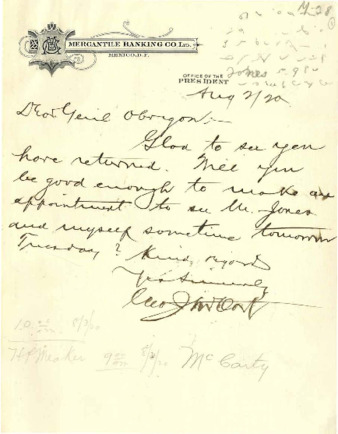 MERCANTILE BANKING CO. LTD.
MEXICO, D.F.
OFFICE OF THE
PRESIDENT
Aug 2/20
Dear Genl Obregon:—
Glad to see you
have returned. Will you
be good enough to make an
appointment to see Mr. Jones
and myself sometime tomorrow
Tuesday? Kind regards
Yrs Sincerely
Geo J McCarty
Jones
8/3/20
McCarty